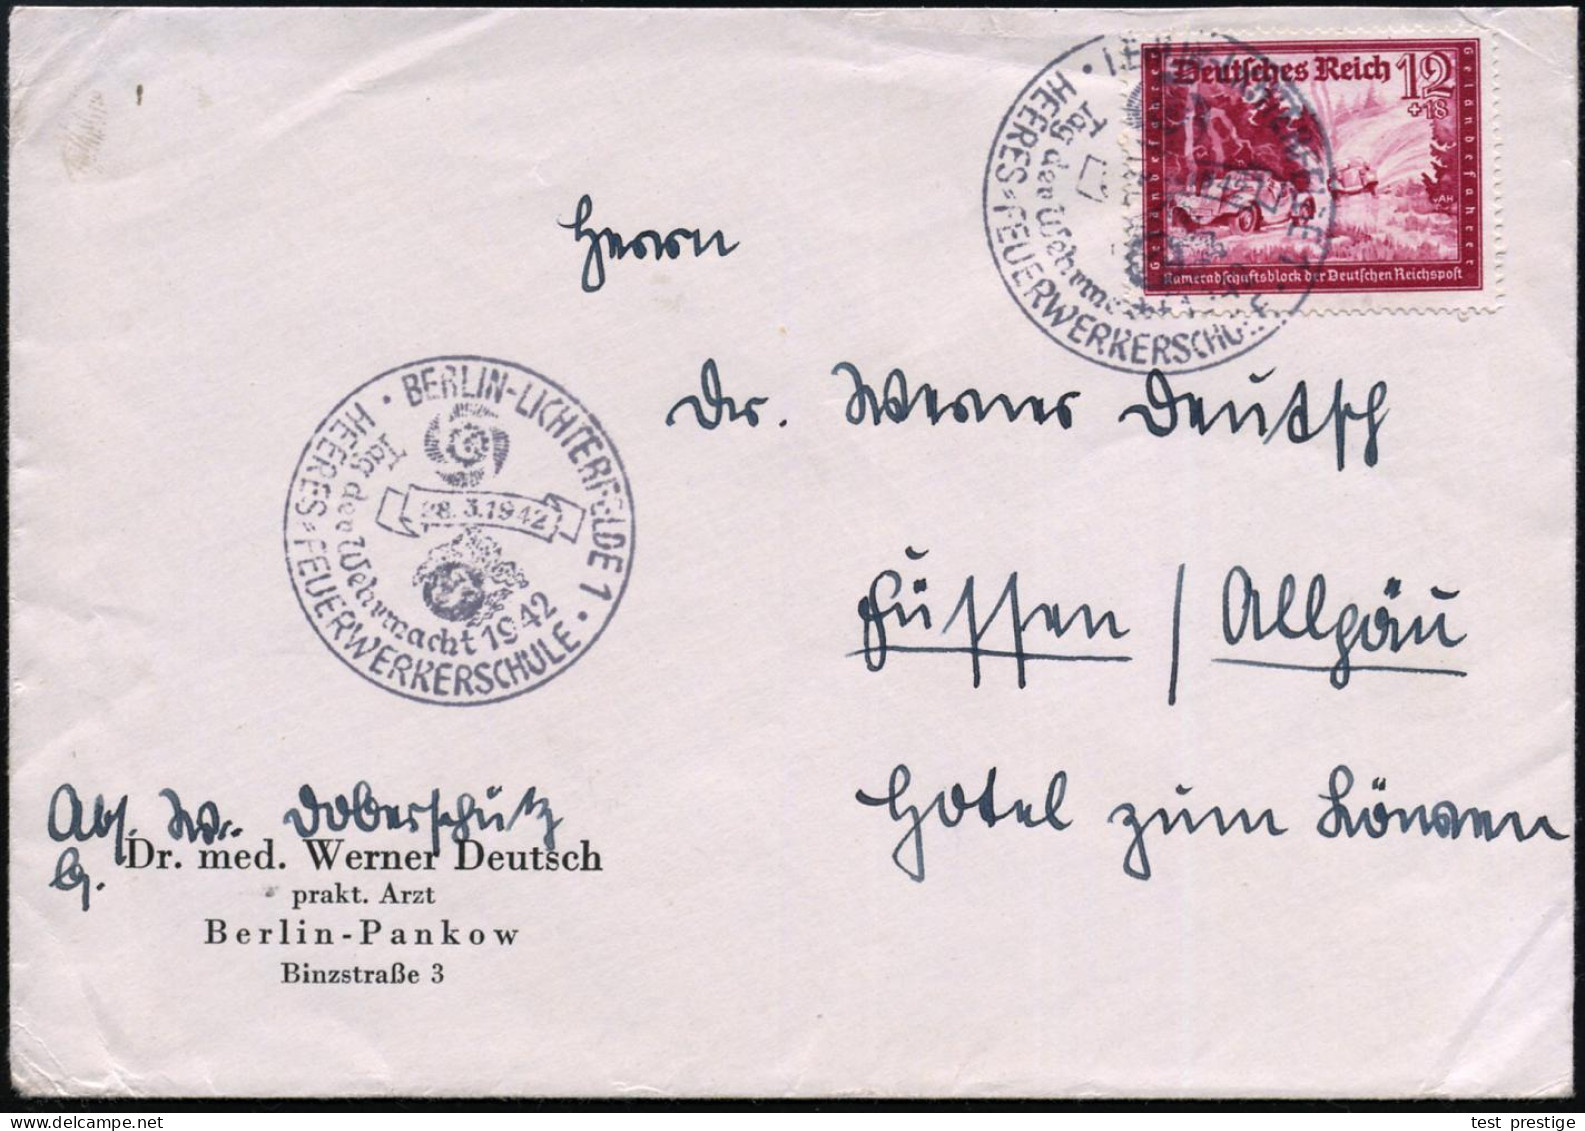 Deutsches Reich 12
+18
Geländefahrer
Geländefahrer
AH
Kameradschaftsblock der Deutschen Reichspost
HEERES-FEUERWERKERSCHULE
Tag der Wehrmacht
Herrn
Dr. Werner Deutsch
Füssen / Allgäu
Hotel zum Löwen
BERLIN-LICHTERFELDE 1
HEERES-FEUERWERKERSCHULE
Tag der Wehrmacht 1942
28.3.1942
Abs. W. Doberschütz
G.
Dr. med. Werner Deutsch
prakt. Arzt
Berlin-Pankow
Binzstraße 3
test prestige